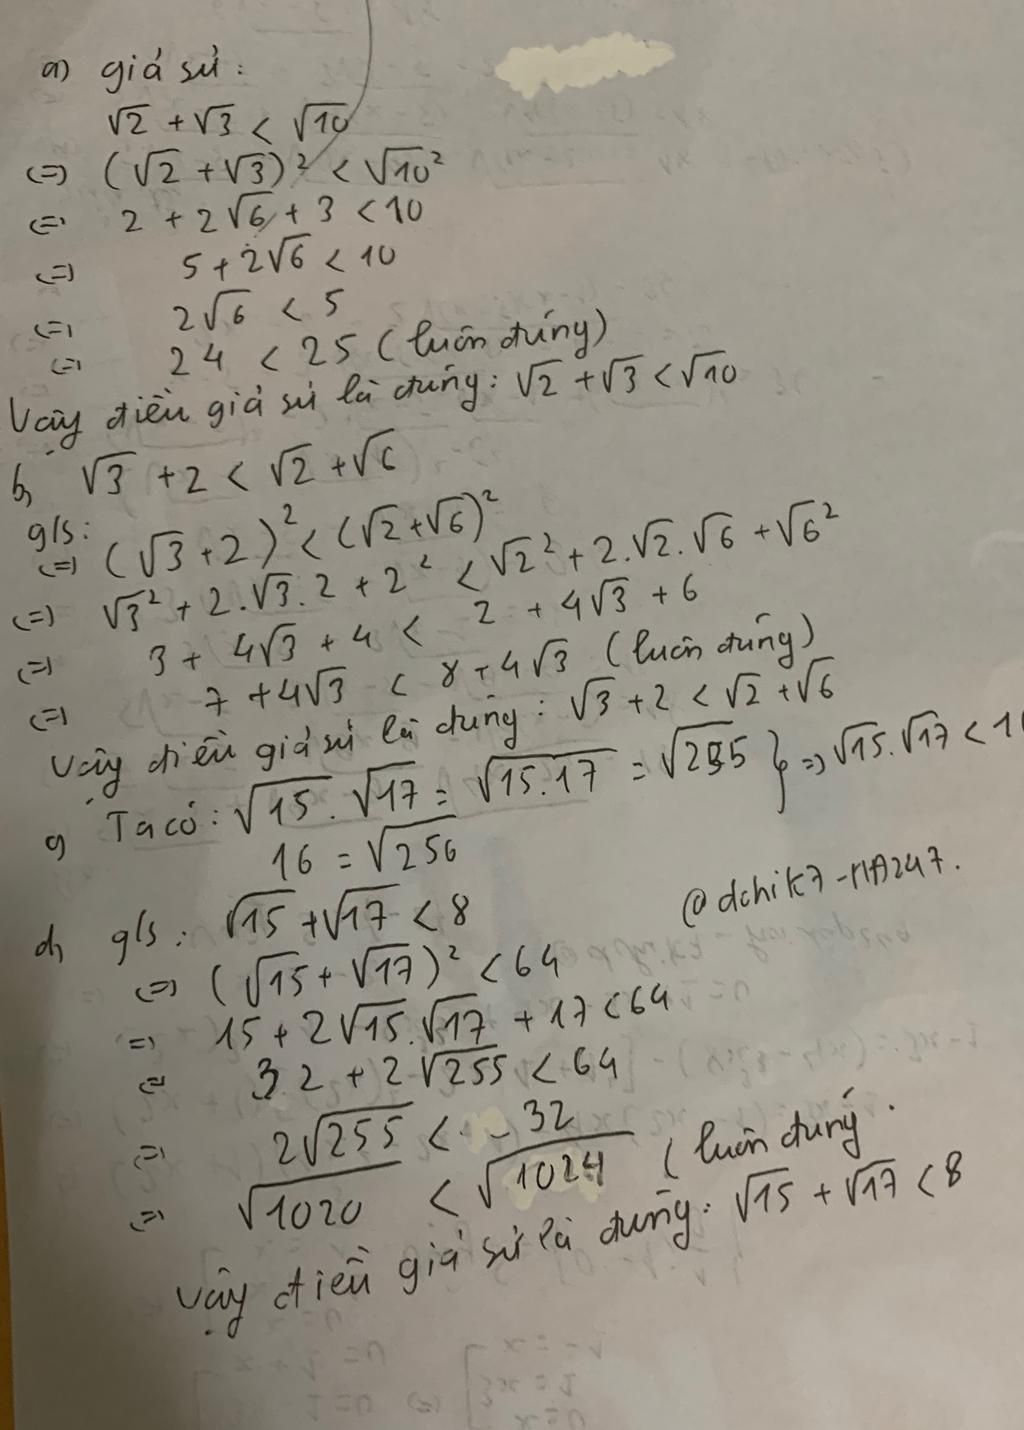 a) giả sử:
√2 + √3 < √10
<=> (√2 + √3)² < √10²
<=> 2 + 2√6 + 3 < 10
<=> 5 + 2√6 < 10
<=> 2√6 < 5
<=> 24 < 25 (luôn đúng)
Vậy điều giả sử là đúng: √2 + √3 < √10
b) √3 + 2 < √2 + √6
g/s:
<=> (√3 + 2)² < (√2 + √6)²
<=> √3² + 2.√3.2 + 2² < √2² + 2.√2.√6 + √6²
<=> 3 + 4√3 + 4 < 2 + 4√3 + 6
<=> 7 + 4√3 < 8 + 4√3 (luôn đúng)
Vậy điều giả sử là đúng: √3 + 2 < √2 + √6
c) Ta có: √15.√17 = √15.17 = √255 } => √15.√17 < 1
16 = √256
@dchik7-HA247.
d) g/s: √15 + √17 < 8
<=> (√15 + √17)² < 64
=> 15 + 2√15.√17 + 17 < 64
=> 32 + 2√255 < 64
=> 2√255 < 32
=> √1020 < √1024 (luôn đúng.
Vậy điều giả sử là đúng: √15 + √17 < 8